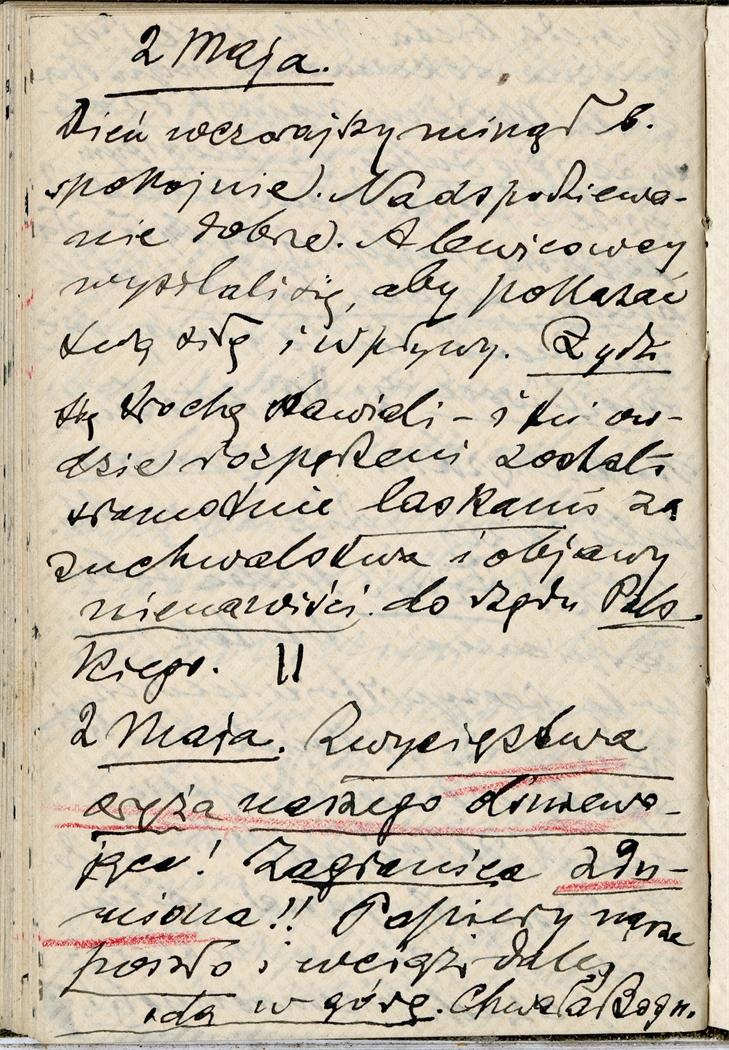 2 Maja.
Dzień wczorajszy minął b.
spokojnie. Nadspodziewa-
nie dobrze. A lewicowcy
wysilali się, aby pokazać
swą siłę i wpływy. Żydzi
się trochę stawiali – i tu ow-
dzie rozpędzeni zostali
sromotnie laskami za
zuchwalstwa i objawy
nienawiści do rządu Pols
kiego. ||
2 Maja. Zwycięstwa
oręża naszego zdumiewa-
jące! Zagranica zdu-
miona!! Papiery nasze
poszło i wciąż dalej
idą w górę. Chwała Bogu.